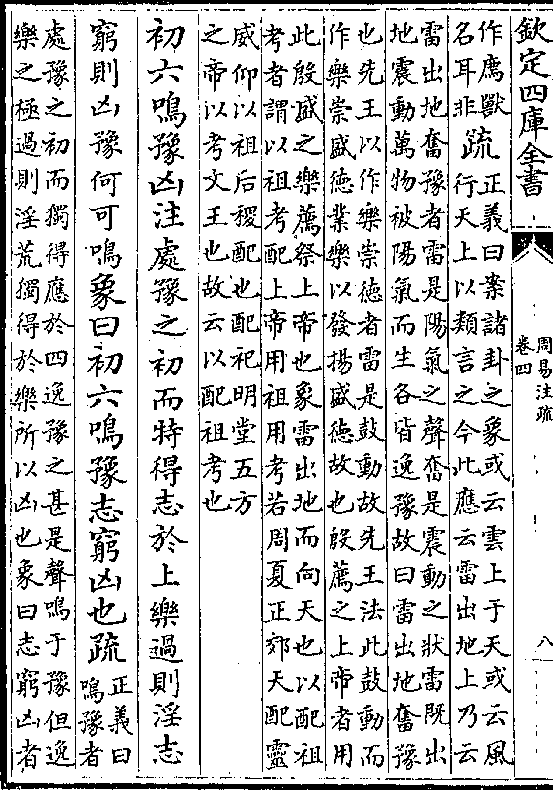 欽定四庫全書
周易注疏
卷四
八
作廌獸
名耳非
疏
正義曰案諸卦之象或云雲上于天或云風
行天上以類言之今此應云雷出地上乃云
雷出地奮豫者雷是陽氣之聲奮是震動之狀雷既出
地震動萬物被陽氣而生各皆逸豫故曰雷出地奮豫
也先王以作樂崇德者雷是鼓動故先王法此鼓動而
作樂崇盛德業樂以發揚盛德故也殷薦之上帝者用
此殷盛之樂薦祭上帝也象雷出地而向天也以配祖
考者謂以祖考配上帝用祖用考若周夏正郊天配靈
威仰以祖后稷配也配祀明堂五方
之帝以考文王也故云以配祖考也
初六鳴豫凶注處豫之初而特得志於上樂過則淫志
窮則凶豫何可鳴象曰初六鳴豫志窮凶也疏
正義曰
鳴豫者
處豫之初而獨得應於四逸豫之甚是聲鳴于豫但逸
樂之極過則淫荒獨得於樂所以凶也象曰志窮凶者